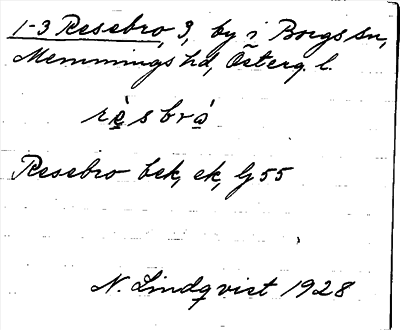 1-3 Resebro, 3, by i Borgs sn,
Memmings hd, Österg. l.
rè̠sbrò̠
Resebro bek, ek, G 55
N. Lindqvist 1928